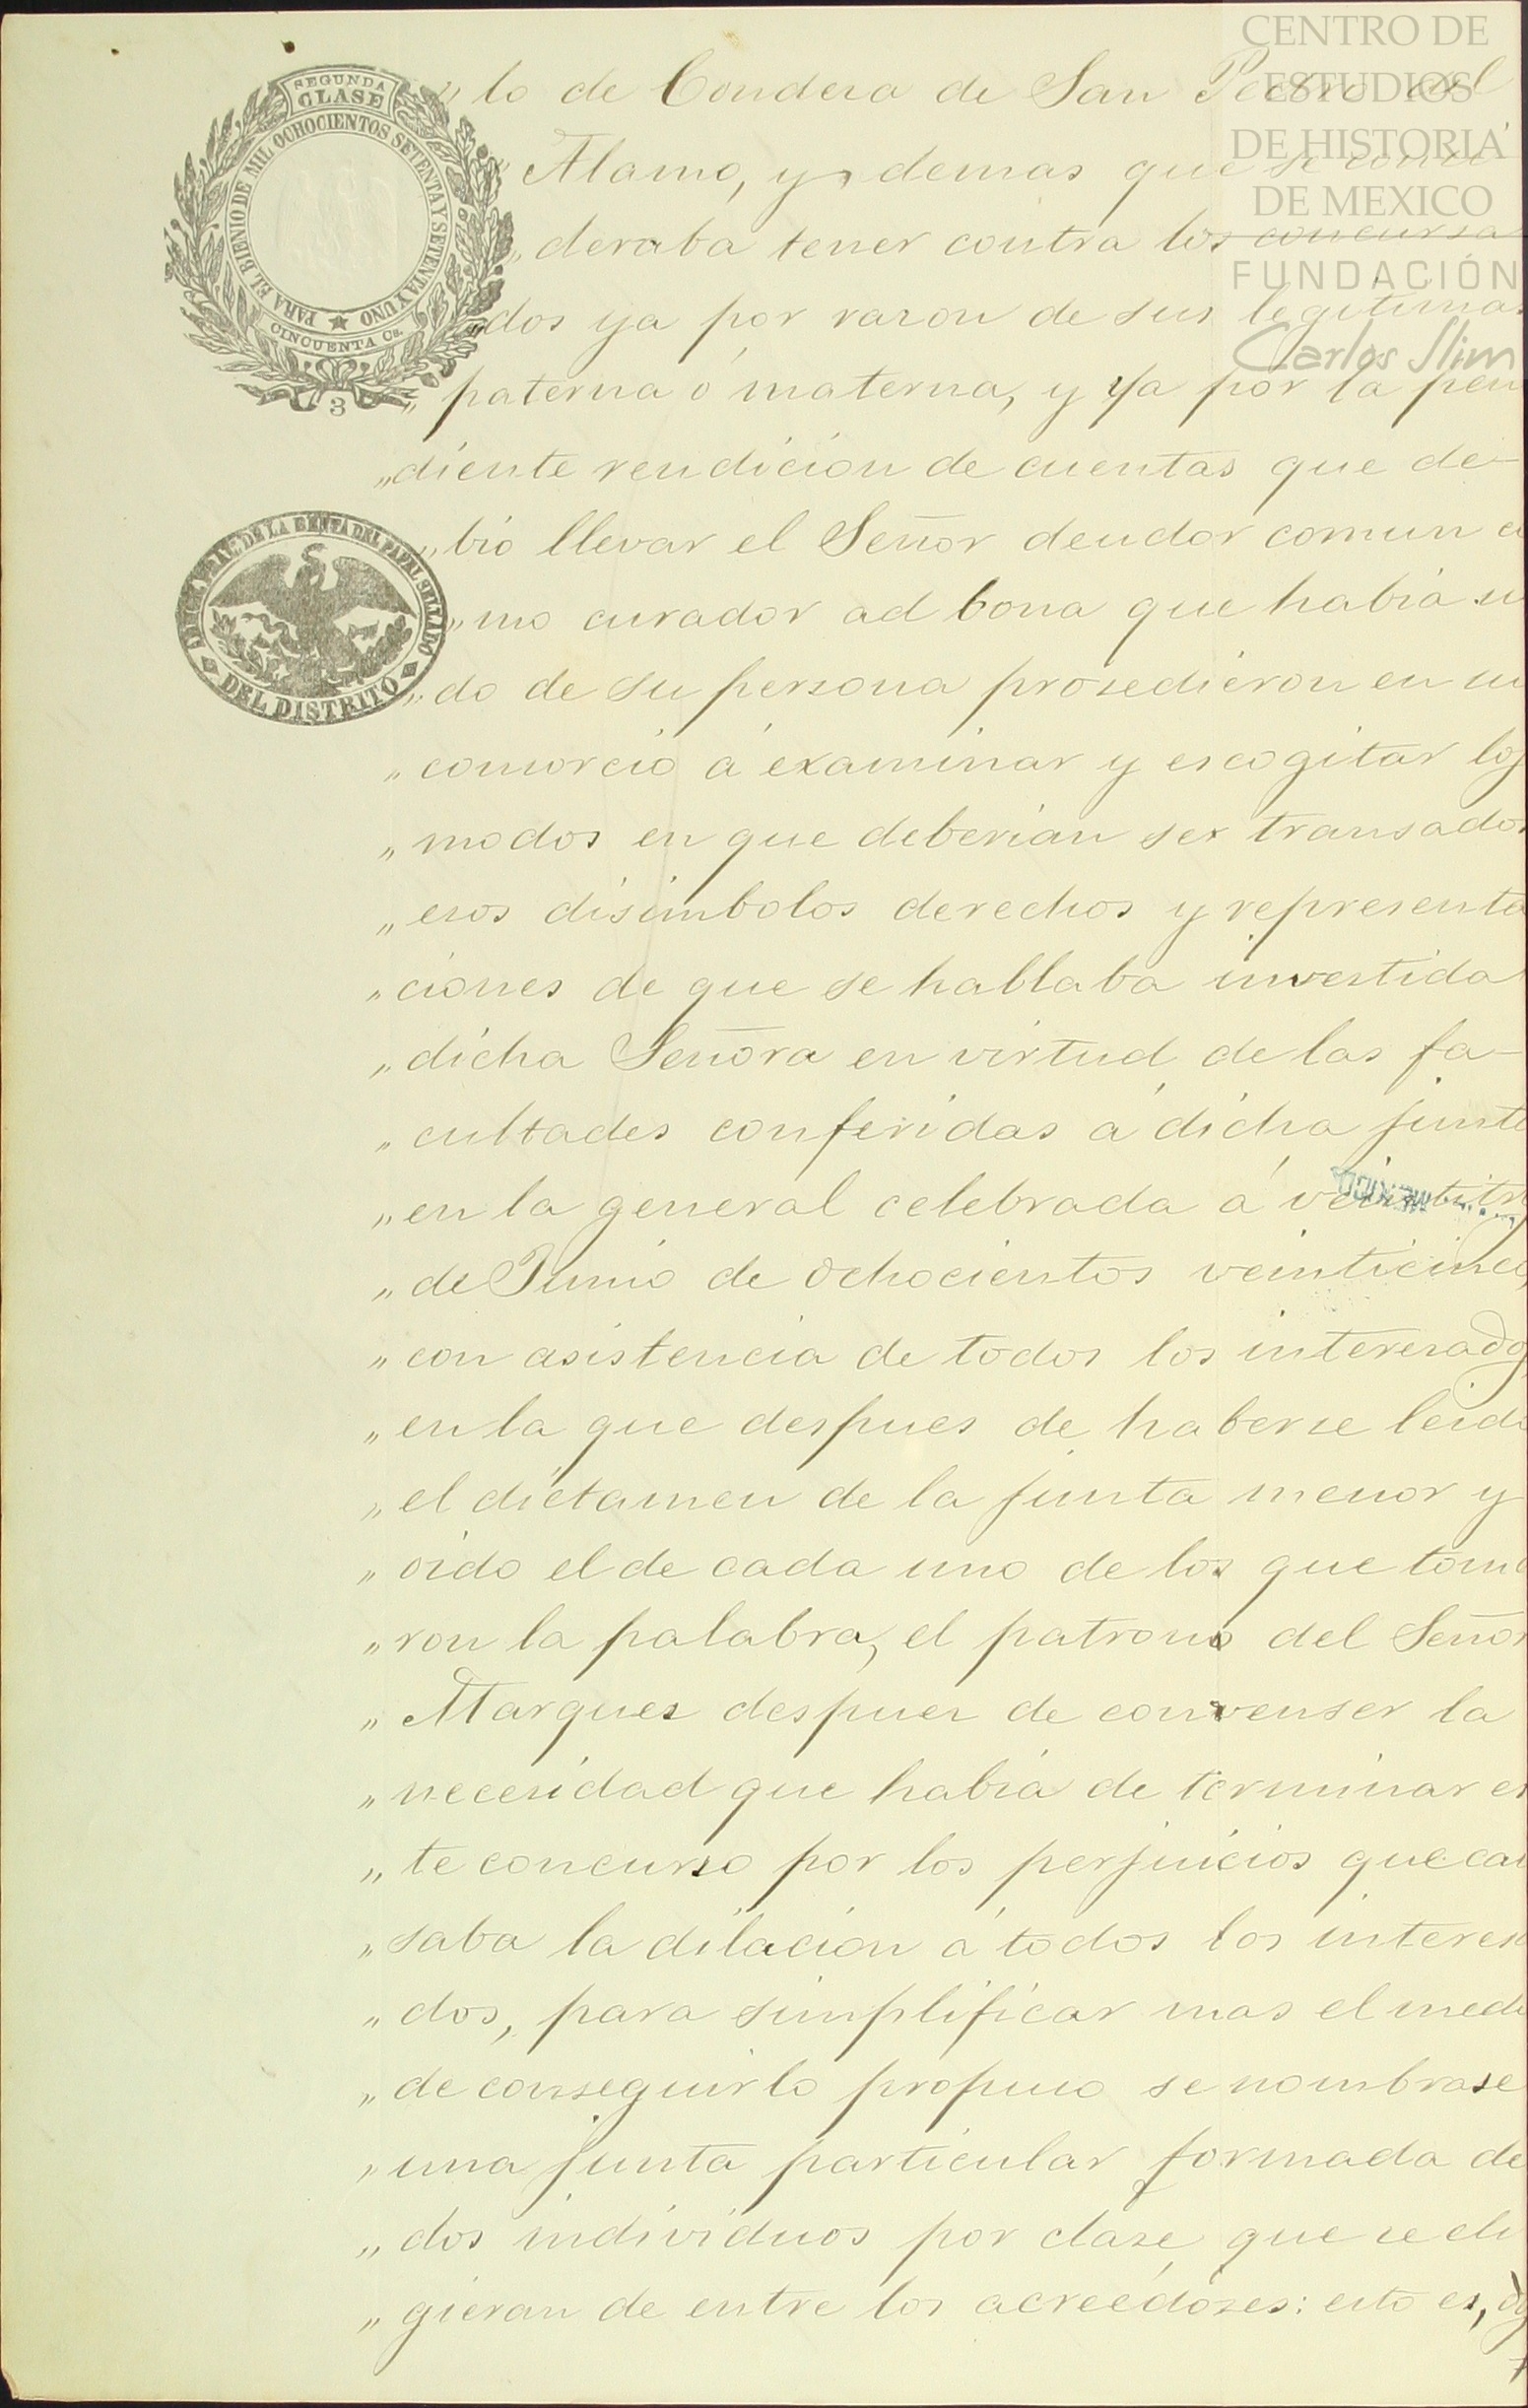 CENTRO DE
ESTUDIOS
DE HISTORIA
DE MEXICO
FUNDACIÓN
Carlos Slim
SEGUNDA
CLASE
PARA EL BIENIO DE MIL OCHOCIENTOS SETENTA Y SETENTA Y UNO
CINCUENTA Cs.
3
DE LA RENTA DEL PAPEL SELLADO
DEL DISTRITO
„lo de Condesa de San Pedro del
„Alamo, y demas que se consi
„deraba tener contra los concursa
„dos ya por razon de sus legitimas
„paterna ó materna, y ya por la pen
„diente rendicion de cuentas que de-
„bió llevar el Señor deudor comun co
„mo curador ad bona que habia si
„do de su persona prosedieron en su
„consorcio á examinar y escogitar los
„modos en que deberian ser transados
„esos disimbolos derechos y representa
„ciones de que se hallaba investida
„dicha Señora en virtud de las fa-
„cultades conferidas á dicha junta
„en la general celebrada á veintitres
„de Junio de ochocientos veinticinco,
„con asistencia de todos los interesados
„en la que despues de haberse leido
„el dictamen de la junta menor y
„oido el de cada uno de los que toma
„ron la palabra, el patrono del Señor
„Marques despues de convenser la
„necesidad que habia de terminar es
„te concurso por los perjuicios que cau
„saba la dilacion á todos los interesa
„dos, para simplificar mas el medio
„de conseguirlo propuso se nombrase
„una junta particular formada de
„dos individuos por clase que se eli
„gieran de entre los acreedores: esto es, dos